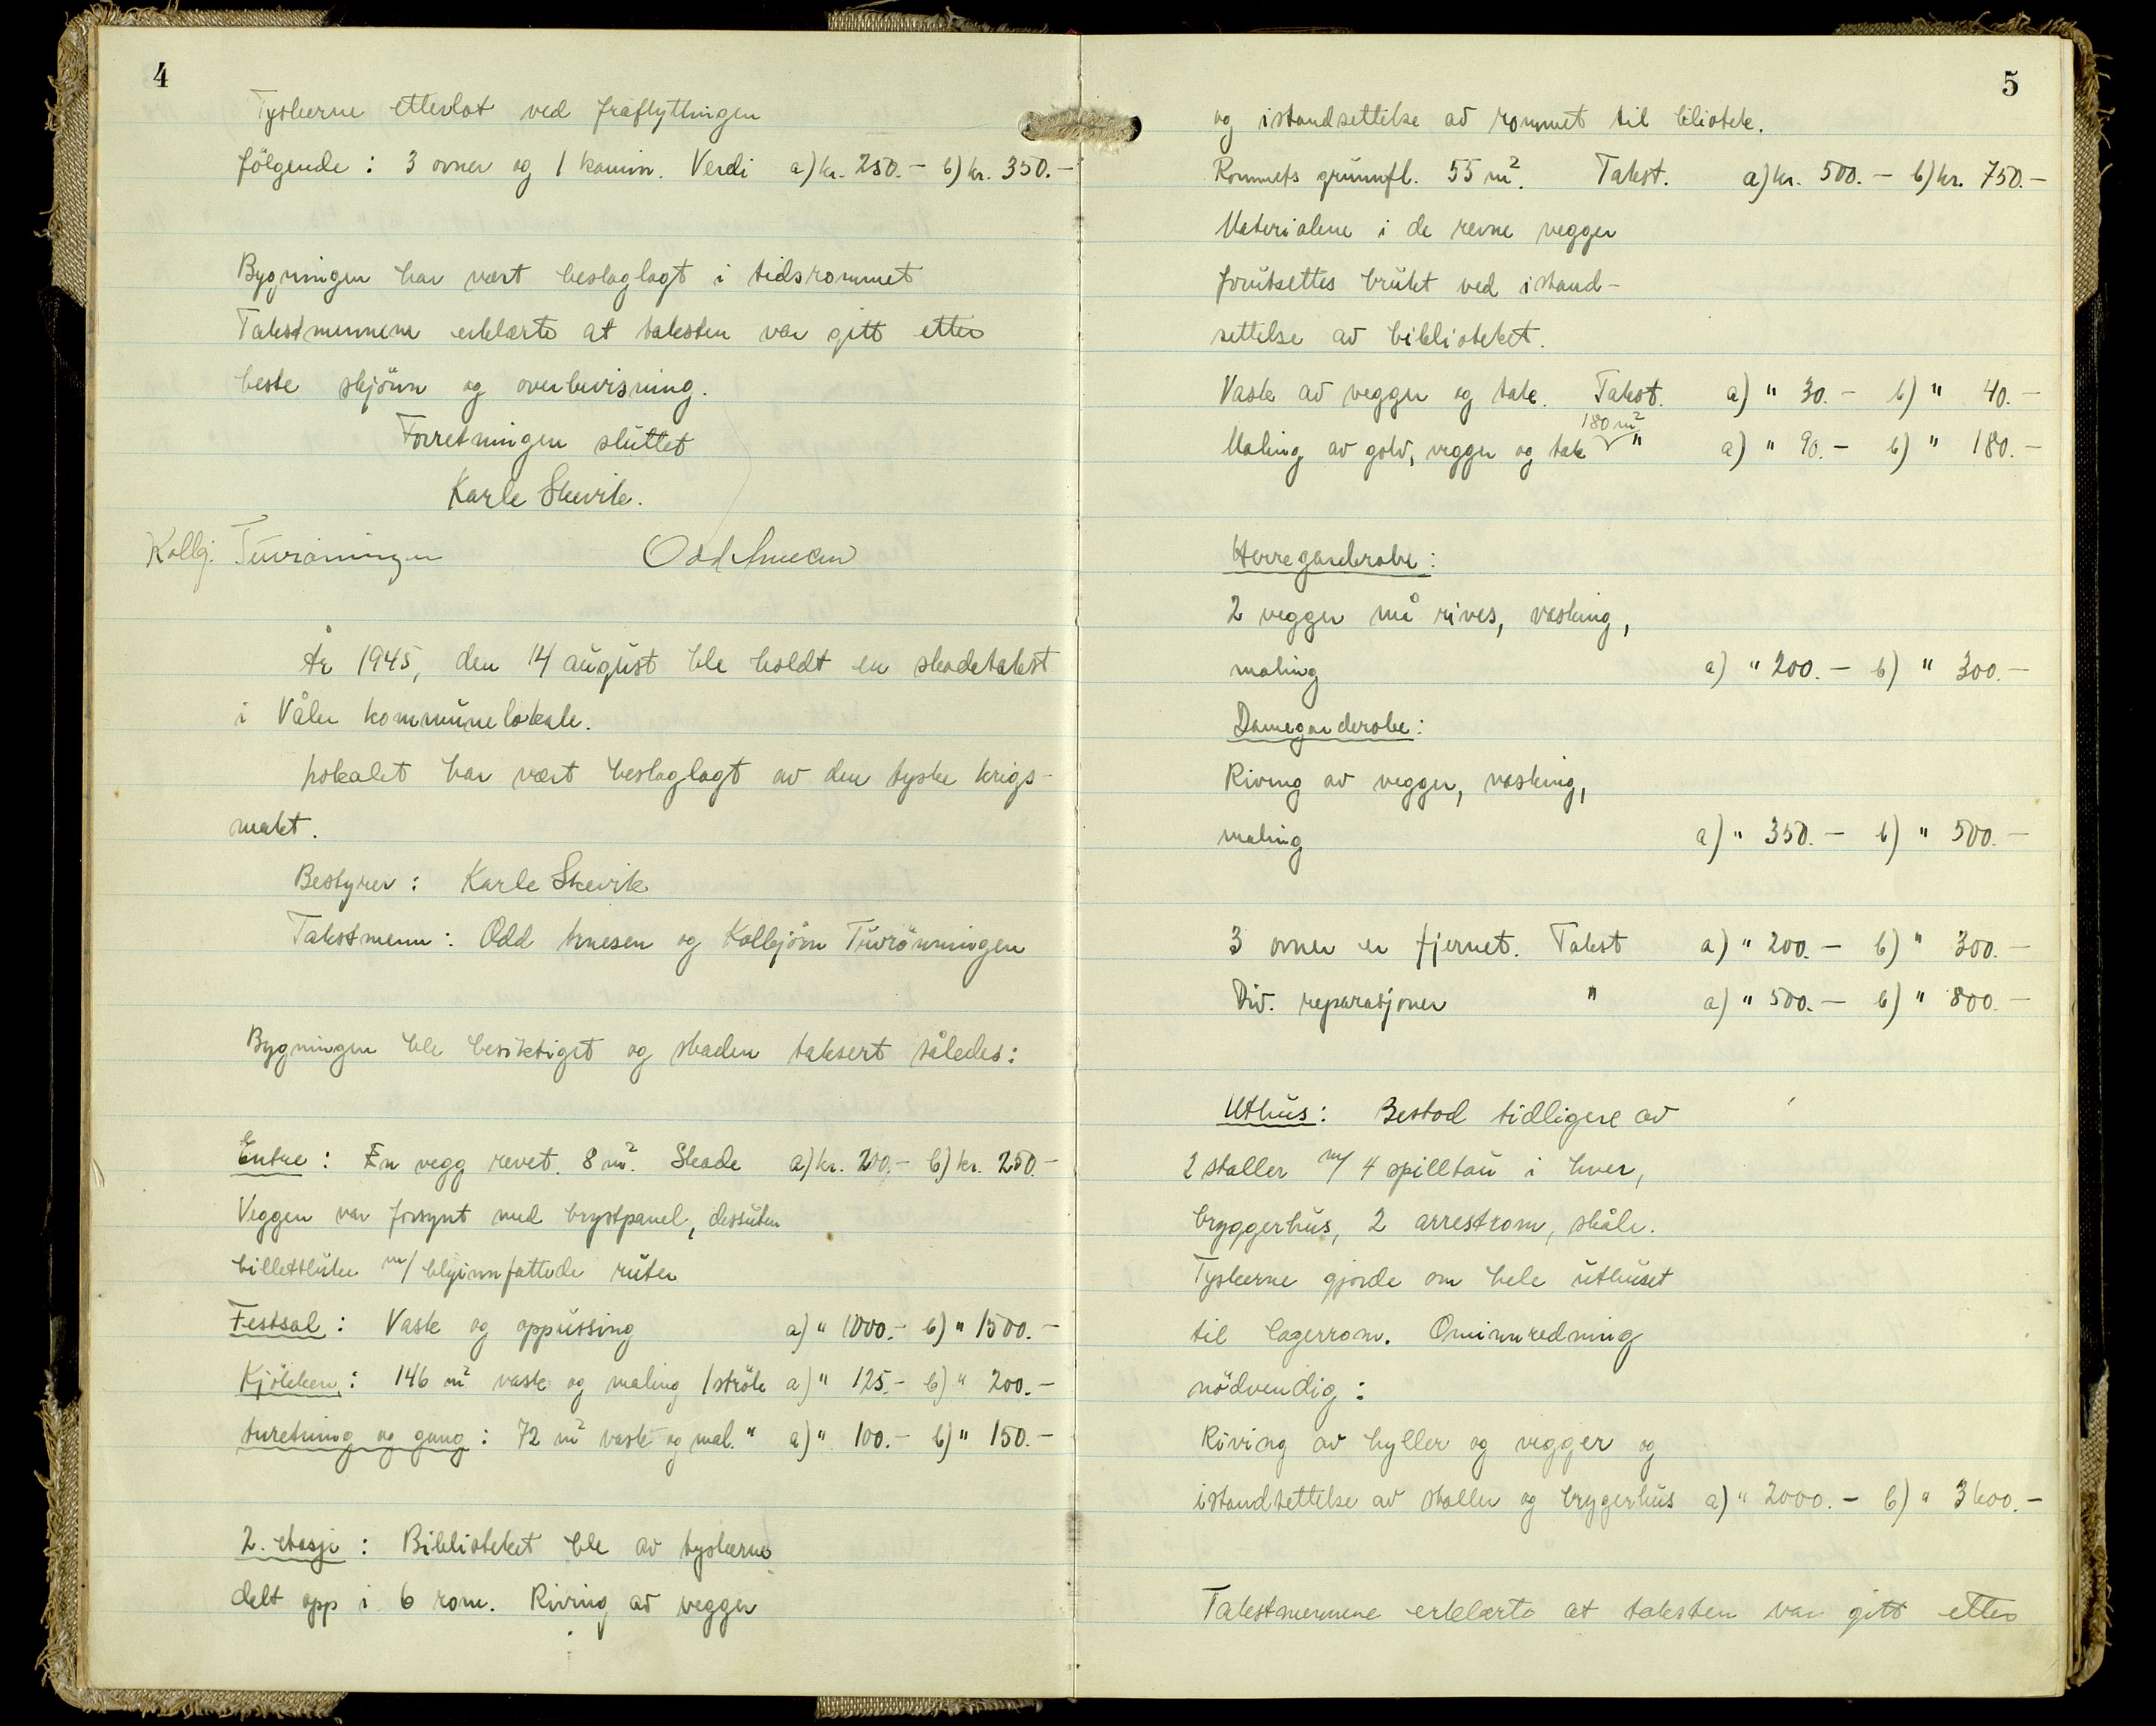 4
Tyskerne etterlot ved fraflyttingen
følgende : 3 ovner og 1 kamin. Verdi a) kr. 250.- b) kr. 350.-
Bygningen har vært beslaglagt i tidsrommet
Takstmennene erklærte at taksten var gitt etter
beste skjönn og overbevisning.
Forretningen sluttet
Karle Skevik.
Kolbj. Tuvrönningen Odd Arnesen
År 1945, den 14 august ble holdt en skadetakst
i Våler kommunelokale.
Lokalet har vært beslaglagt av den tyske krigs-
makt.
Bestyrer : Karle Skevik
Takstmenn : Odd Arnesen og Kolbjörn Tuvrönningen
Bygningen ble besiktiget og skaden taksert således :
Entre : En vegg revet. 8 m². Skade a) kr. 200.- b) kr. 250.-
Veggen var forsynt med brystpanel, dessuten
billettluke m/ blyinnfattede ruter
Festsal : Vask og oppussing a) " 1000.- b) " 1500.-
Kjökken : 146 m² vask og maling 1 strök a) " 125.- b) " 200.-
Anretning og gang : 72 m² vask og mal. " a) " 100.- b) " 150.-
2. etasje : Biblioteket ble av tyskerne
delt opp i 6 rom. Riving av vegger
5
og istandsettelse av rommet til bliotek.
Rommets grunnfl. 55 m². Takst. a) kr. 500.- b) kr. 750.-
Materialene i de revne vegger
forutsettes brukt ved istand-
settelse av biblioteket.
Vask av vegger og tak. Takst. a) " 30.- b) " 40.-
180 m²
Maling av golv, vegger og tak " a) " 90.- b) " 180.-
Herregarderobe :
2 vegger må rives, vasking,
maling a) " 200.- b) " 300.-
Damegarderobe :
Riving av vegger, vasking,
maling a) " 350.- b) " 500.-
3 ovner er fjernet. Takst a) " 200.- b) " 300.-
Div. reparasjoner " a) " 500.- b) " 800.-
Uthus : Bestod tidligere av
2 staller m/ 4 spilltau i hver,
bryggerhus, 2 arrestrom, skåle.
Tyskerne gjorde om hele uthuset
til lagerrom. Ominnredning
nödvendig :
Riving av hyller og vegger og
istandsettelse av staller og brygerhus a) " 2000.- b) " 3600.-
Takstmennene erklærte at taksten var gitt etter